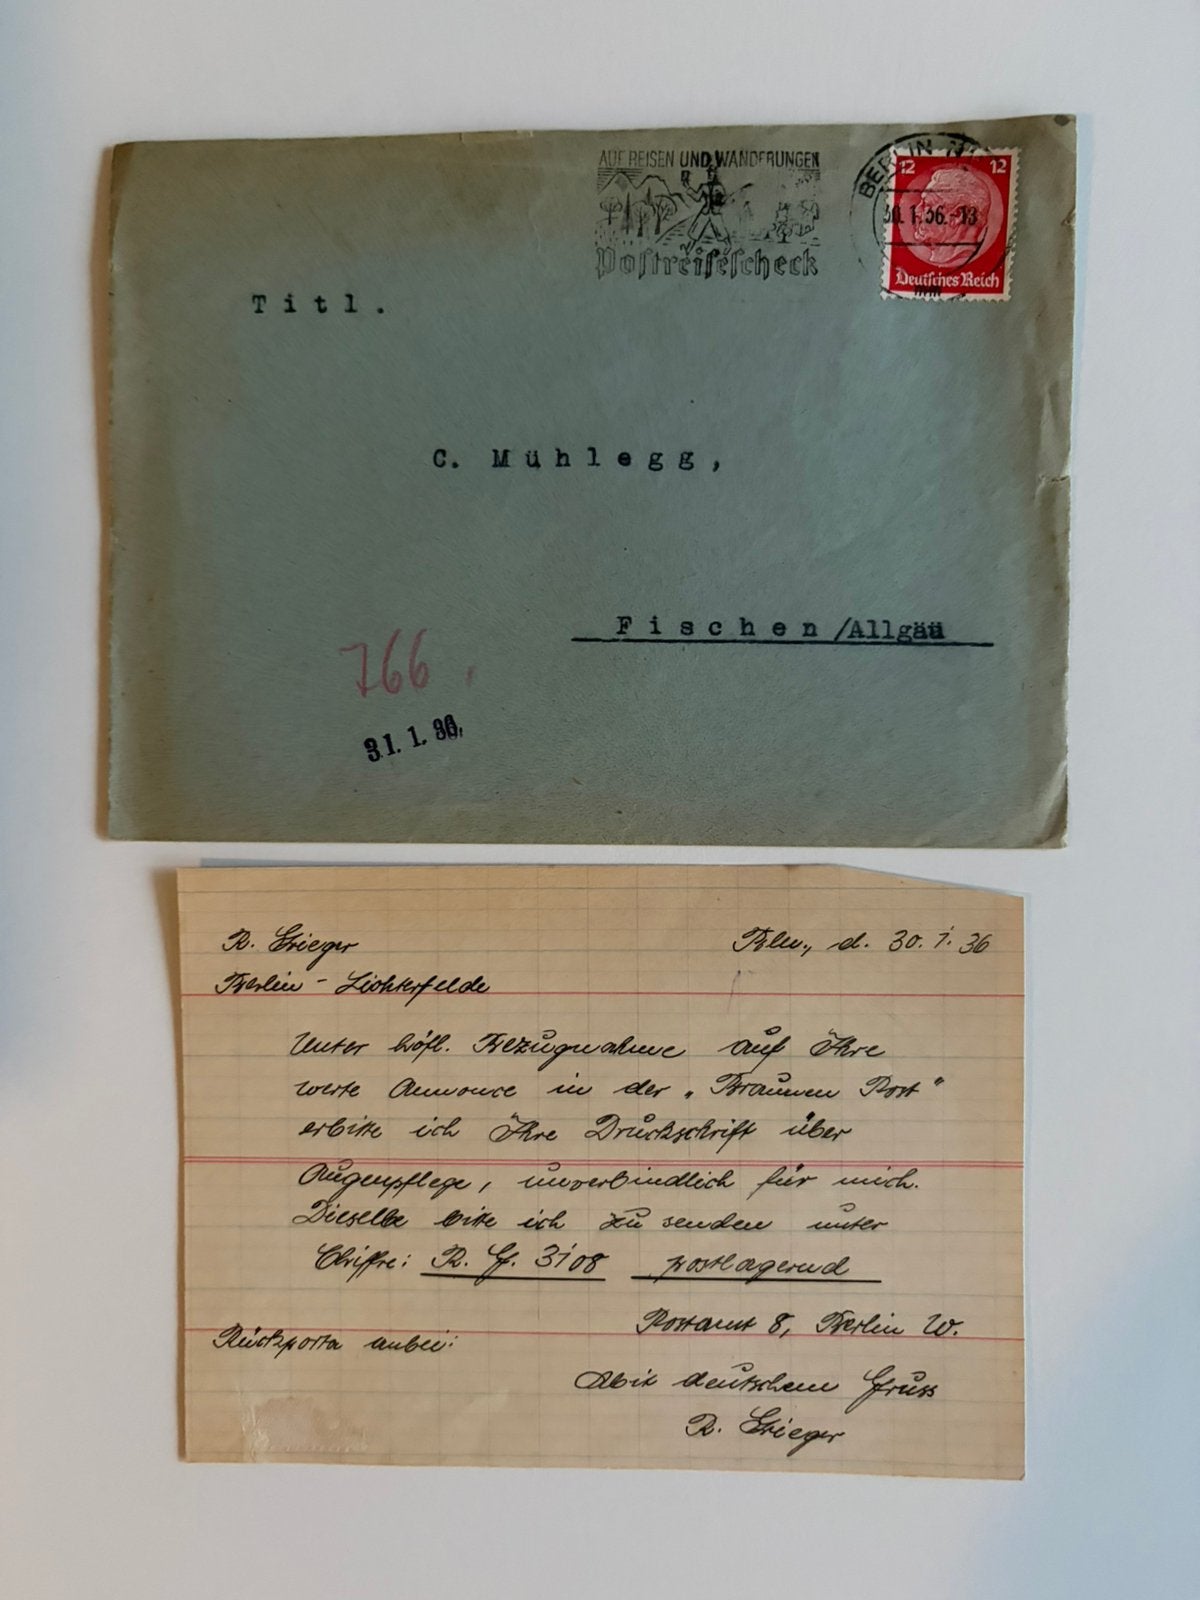 AUF REISEN UND WANDERUNGEN
Postreisescheck
BERLIN
30.1.36.-13
12 12
Deutsches Reich
Titl.
C. Mühlegg,
Fischen/Allgäu
766
31. 1. 36.
R.
Bln., d. 30.1.36
Berlin - Lichterfelde
Unter höfl. Bezugnahme auf Ihre
werte Annonce in der „Braunen Post"
erbitte ich Ihre Druckschrift über
Augenpflege, unverbindlich für mich.
Dieselbe bitte ich zu senden unter
Chiffre: R. G. 3108 postlagernd
Postamt 8, Berlin W.
Rückporto anbei:
Mit deutschem Gruss
R.